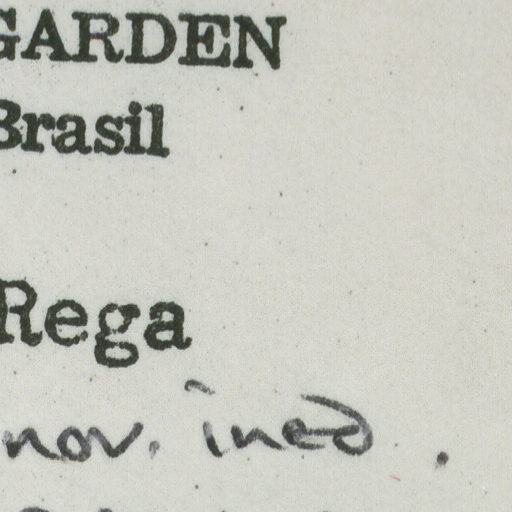 GARDEN
Brasil
Rega
nov. ined.